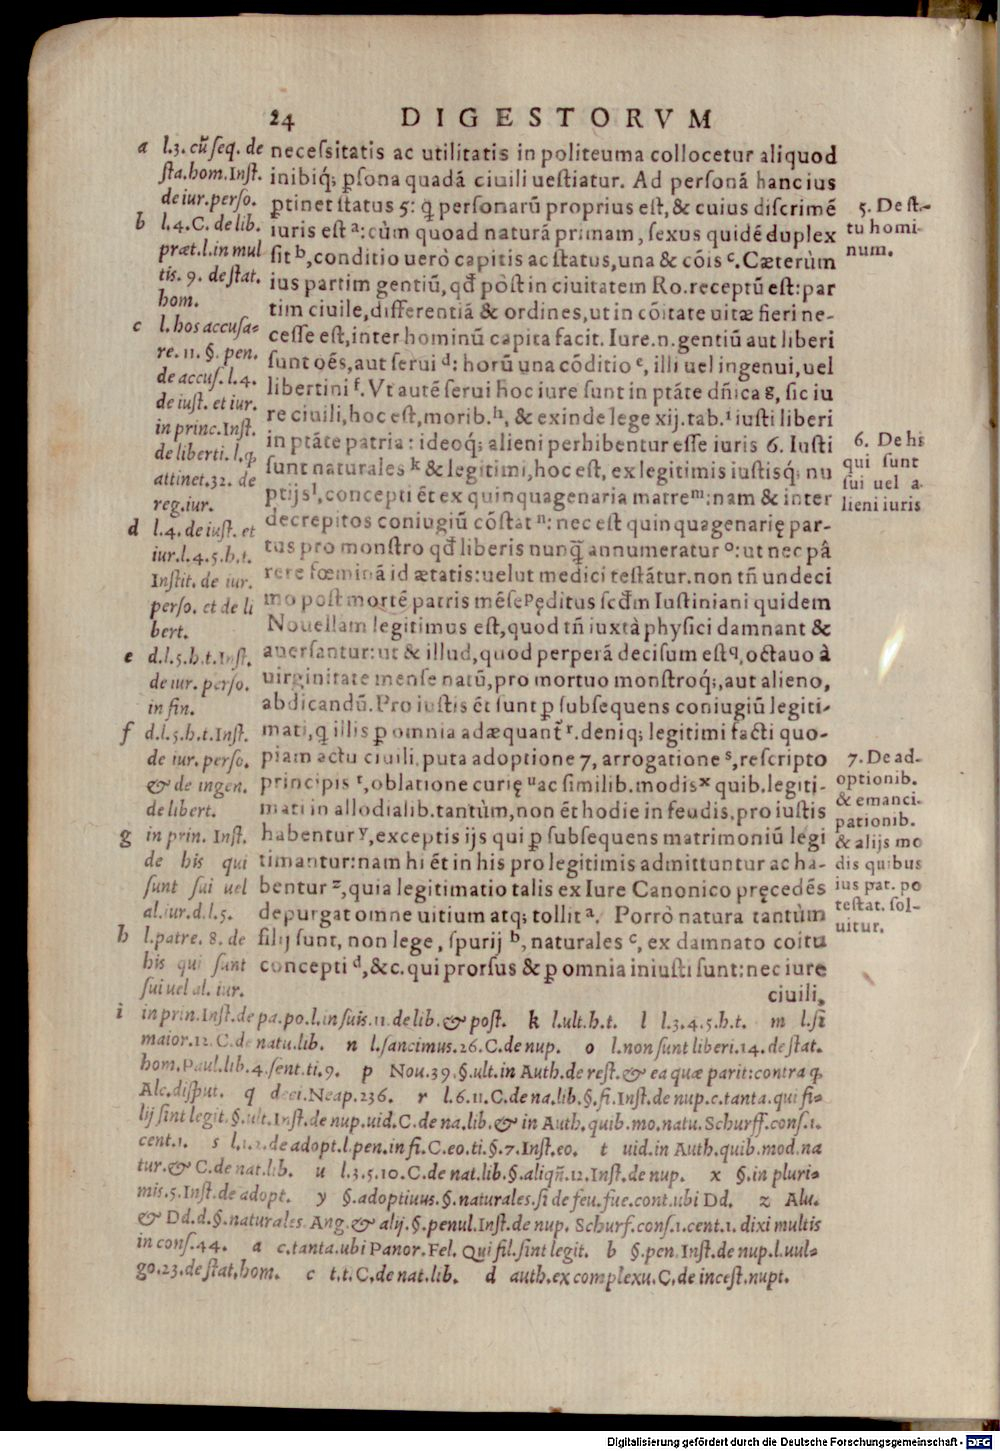 24 DIGESTORVM
neceſsitatis ac utilitatis in politeuma collocetur aliquod
inibiq́; ꝑſona quadā ciuili ueſtiatur. Ad perſonā hanc ius
ꝑtinet ſtatus 5: q̄ perſonarū proprius eſt, & cuius diſcrimē
iuris eſt ᵃ: cùm quoad naturā primam, ſexus quidē duplex
ſit ᵇ, conditio uerò capitis ac ſtatus, una & cōis ᶜ. Cæterùm
ius partim gentiū, qd̄ pòſt in ciuitatem Ro. receptū eſt: par
tim ciuile, differentiā & ordines, ut in cōitate uitæ fieri ne-
ceſſe eſt, inter hominū capita facit. Iure .n. gentiū aut liberi
ſunt oēs, aut ſerui ᵈ: horū una cōditio ᵉ, illi uel ingenui, uel
libertini ᶠ. Vt autē ſerui hoc iure ſunt in ptāte dñica g, ſic iu
re ciuili, hoc eſt, morib. ʰ, & exinde lege xij. tab. ⁱ iuſti liberi
in ptāte patria: ideoq́; alieni perhibentur eſſe iuris 6. Iuſti
ſunt naturales ᵏ & legitimi, hoc eſt, ex legitimis iuſtisq́; nu
ptijs ˡ, concepti ēt ex quinquagenaria matre ᵐ: nam & inter
decrepitos coniugiū cōſtat ⁿ: nec eſt quinquagenarię par-
tus pro monſtro qd̄ liberis nunq̄ annumeratur ᵒ: ut nec pâ
rere fœminā id ætatis: uelut medici teſtātur. non tñ undeci
mo poſt mortē patris mēſe ᵖ ęditus ſcd̄m Iuſtiniani quidem
Nouellam legitimus eſt, quod tñ iuxtà phyſici damnant &
auerſantur: ut & illud, quod perperā deciſum eſt q, octauo à
uirginitate menſe natū, pro mortuo monſtroq́;, aut alieno,
abdicandū. Pro iuſtis ēt ſunt ꝑ ſubſequens coniugiū legiti-
mati, q̄ illis ꝑ omnia adæquant̄ ʳ. deniq; legitimi facti quo-
piam actu ciuili, puta adoptione 7, arrogatione ˢ, reſcripto
principis ᵗ, oblatione curię ᵘ ac ſimilib. modis ˣ quib. legiti-
mati in allodialib. tantùm, non ēt hodie in feudis, pro iuſtis
habentur ʸ, exceptis ijs qui ꝑ ſubſequens matrimoniū legi
timantur: nam hi ēt in his pro legitimis admittuntur ac ha-
bentur ᶻ, quia legitimatio talis ex Iure Canonico pręcedēs
depurgat omne uitium atq; tollit ᵃ. Porrò natura tantùm
filij ſunt, non lege, ſpurij ᵇ, naturales ᶜ, ex damnato coitu
concepti ᵈ, &c. qui prorſus & ꝑ omnia iniuſti ſunt: nec iure
ciuili,
a l.3. cū ſeq. de
ſta. hom. Inſt.
de iur. perſo.
b l.4. C. de lib.
præt. l. in mul
tis. 9. de ſtat.
hom.
c l. hos accuſa=
re. 11. §. pen.
de accuſ. l.4.
de iuſt. et iur.
in princ. Inſt.
de liberti. l. q̄
attinet. 32. de
reg. iur.
d l.4. de iuſt. et
iur. l.4.5. h.t.
Inſtit. de iur.
perſo. et de li
bert.
e d.l.5. h.t. Inſt.
de iur. perſo.
in fin.
f d.l.5. h.t. Inſt.
de iur. perſo.
& de ingen.
de libert.
g in prin. Inſt.
de his qui
ſunt ſui uel
al. iur. d.l.5.
h l. patre. 8. de
his qui ſunt
ſui uel al. iur.
5. De ſt-
tu homi-
num.
6. De hi
qui ſunt
ſui uel a
lieni iuris
7. De ad-
optionib.
& emanci-
pationib.
& alijs mo
dis quibus
ius pat. po
teſtat. ſol-
uitur.
i in prin. Inſt. de pa. po. l. in ſuis. 11. de lib. & poſt. k l. ult. h.t. l l.3.4.5. h.t. m l. ſi
maior. 12. C. de natu. lib. n l. ſancimus. 26. C. de nup. o l. non ſunt liberi. 14. de ſtat.
hom. Paul. lib. 4. ſent. ti. 9. p Nou. 39. §. ult. in Auth. de reſt. & ea quæ parit: contra q̄
Alc. diſput. q deci. Neap. 236. r l.6.11. C. de na. lib. §. fi. Inſt. de nup. c. tanta. qui fi=
lij ſint legit. §. ult. Inſt. de nup. uid. C. de na. lib. & in Auth. quib. mo. natu. Schurff. conſ. 1.
cent. 1. s l.1.2. de adopt. l. pen. in fi. C. eo. ti. §. 7. Inſt. eo. t uid. in Auth. quib. mod. na
tur. & C. de nat. lib. u l.3.5.10. C. de nat. lib. §. aliqñ. 12. Inſt. de nup. x §. in pluri=
mis. 5. Inſt. de adopt. y §. adoptiuus. §. naturales. ſi de feu. fue. cont. ubi Dd. z Alu.
& Dd. d. §. naturales. Ang. & alij. §. penul. Inſt. de nup. Schurf. conſ. 1. cent. 1. dixi multis
in conſ. 44. a c. tanta. ubi Panor. Fel. Qui fil. ſint legit. b §. pen. Inſt. de nup. l. uul=
go. 23. de ſtat. hom. c t.t. C. de nat. lib. d auth. ex complexu. C. de inceſt. nupt.
Digitalisierung gefördert durch die Deutsche Forschungsgemeinschaft - DFG